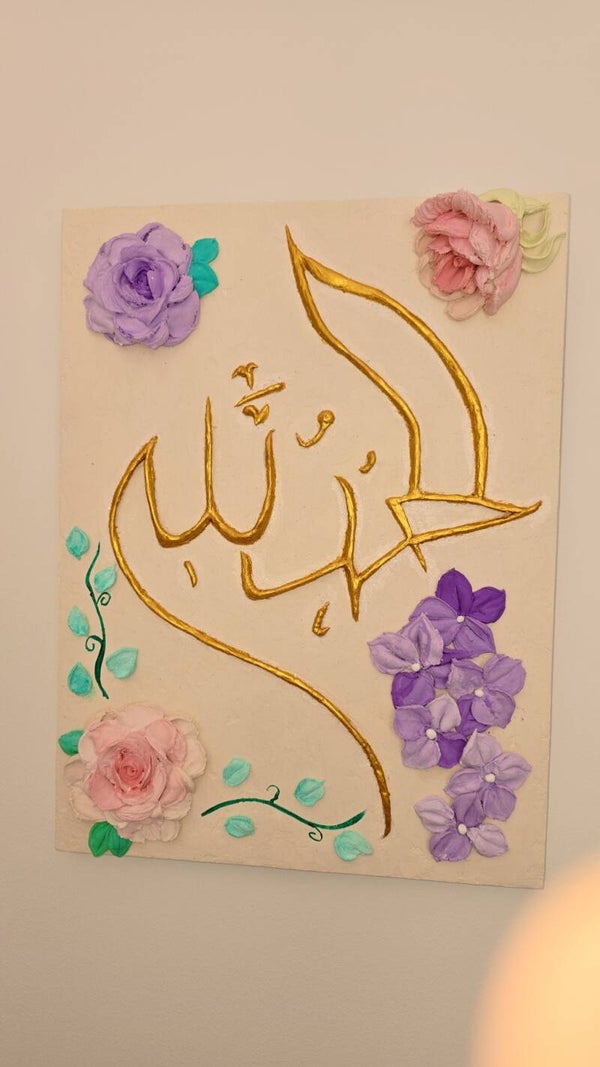 الحمدُ لِلّهِ